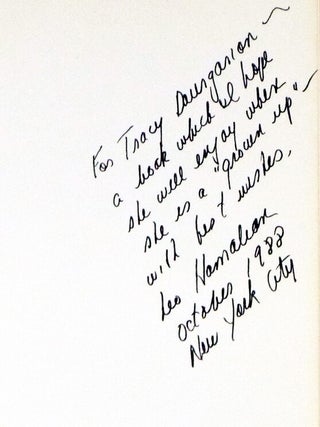 For Tracy Dourgarian ~
a book which I hope
she will enjoy when
she is a "grown up" ~
with best wishes,
Leo Hamalian
October 1988
New York City